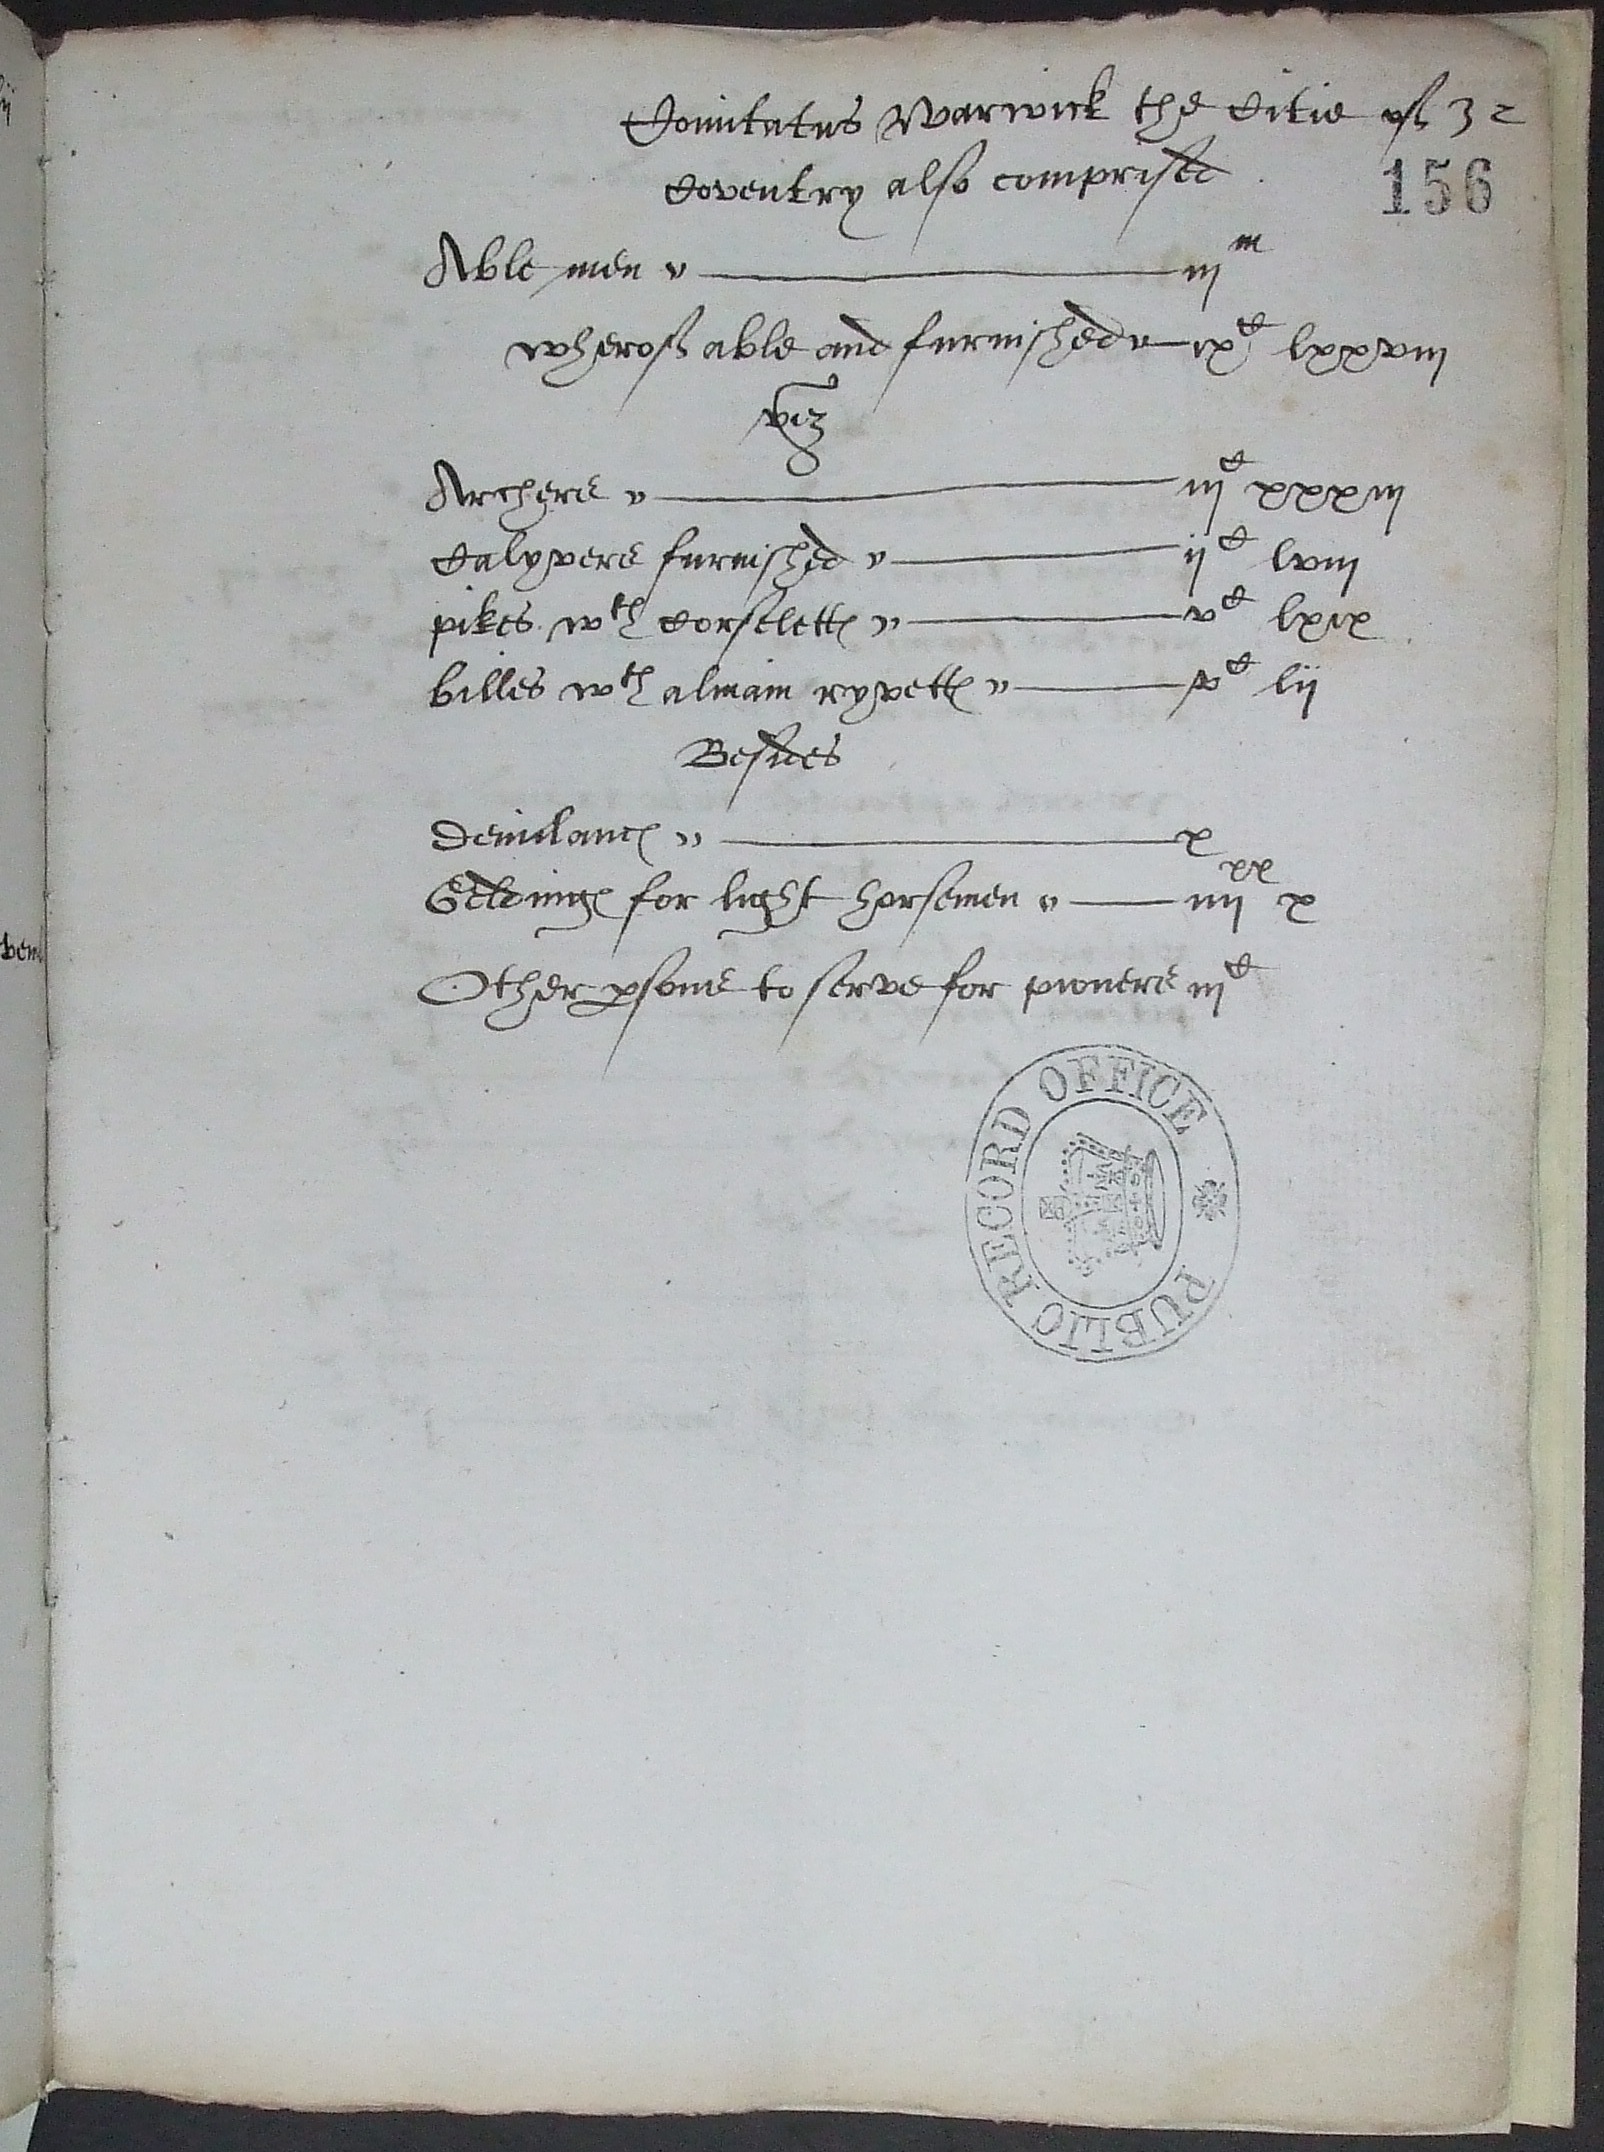 Comitatus Warwick the Citie of 32
Coventry also comprised
156
Able men — iijᵐ
wherof able and furnished — ixᶜ lxxviij
viz
Archers — iijᶜ xxxiij
Calyvers furnished — ijᶜ lviij
pikes wᵗʰ corselettes — vᶜ lxix
billes wᵗʰ almain ryvettes — vᶜ lij
Besides
Demilances — x
Geldinges for light horsemen — iiijˣˣ x
Other psons to serve for pioners iijᶜ
PUBLIC RECORD OFFICE